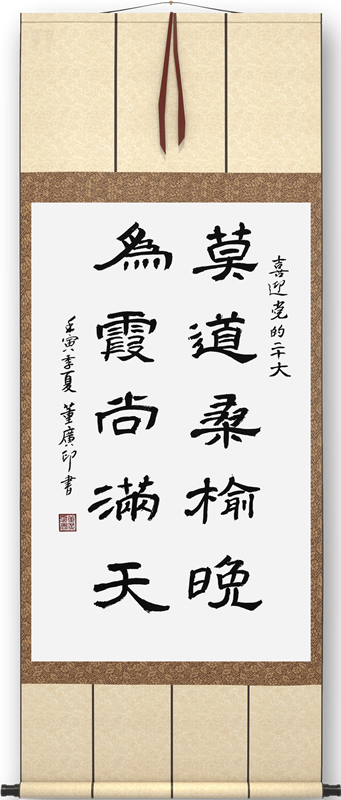 喜迎党的二十大
莫道桑榆晚
為霞尚滿天
壬寅季夏 董廣印書